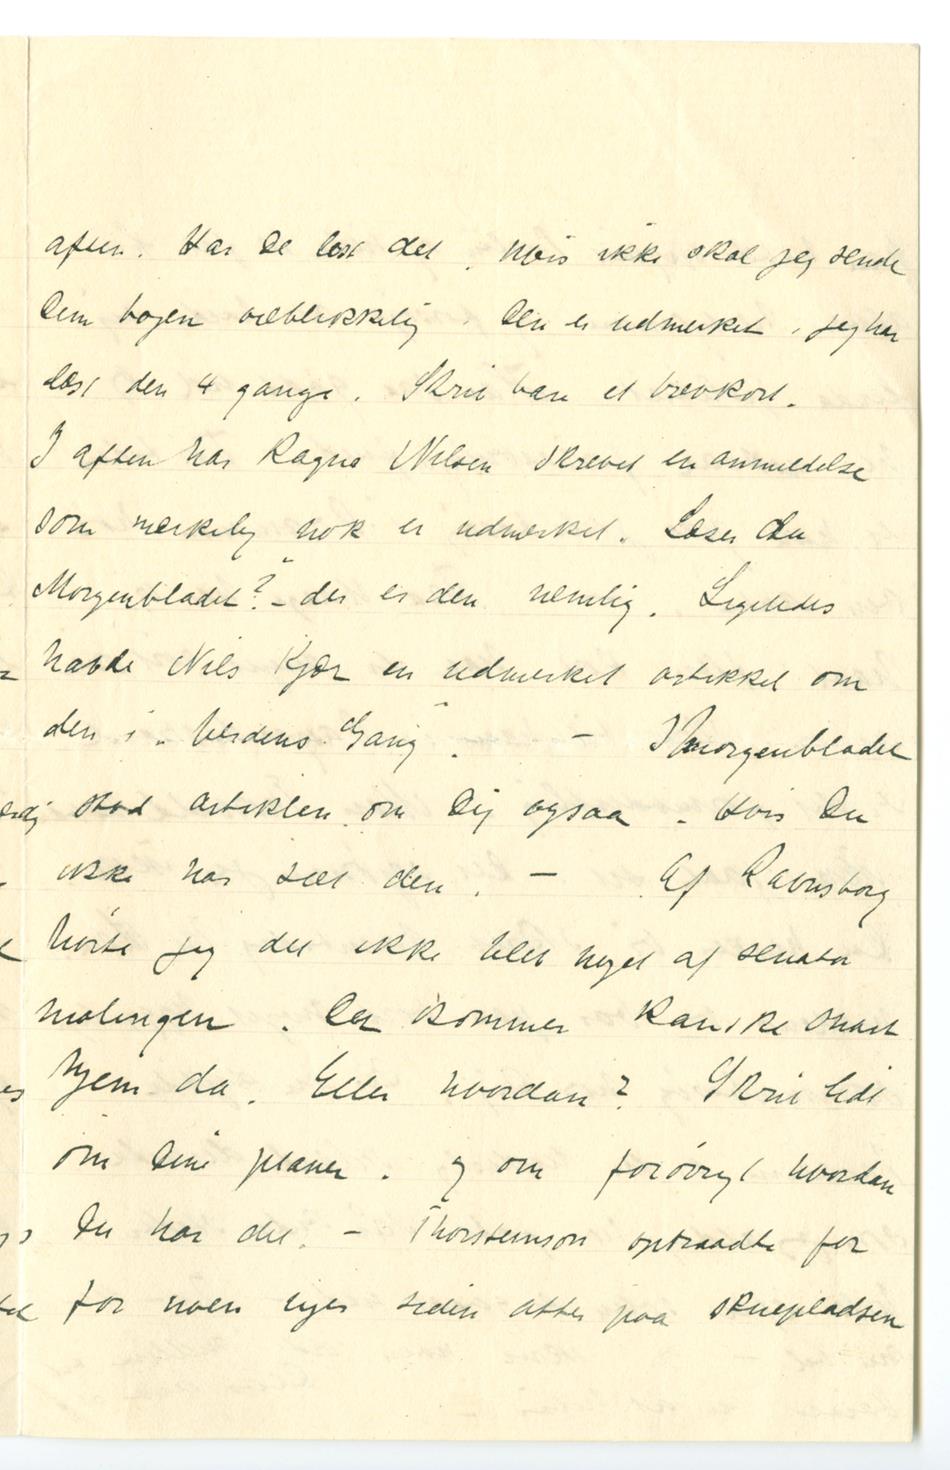 aften. Har De læst det. Hvis ikke skal jeg sende
Dem bogen øieblikkelig. Den er udmerket, jeg har
læst den 4 gange. Skriv bare et brevkort.
I aften har Ragna Nilsen skrevet en anmeldelse
som merkelig nok er udmerket. Læser du
Morgenbladet? - der er den nemlig. Ligeledes
havde Nils Kjær en udmerket artikkel om
den i "Verdens Gang". - I Morgenbladet
stod artiklen om Dig ogsaa - Hvis Du
ikke har seet den. - Af Ravnsborg
hørte jeg det ikke blev noget af senator
malingen. Du kommer kanske snart
hjem da. Eller hvordan? Skriv lidt
om Dine planer. og om forøvrigt hvordan
Du har det. - Thorsteinson optraadte for
for noen uger siden atter paa skuepladsen